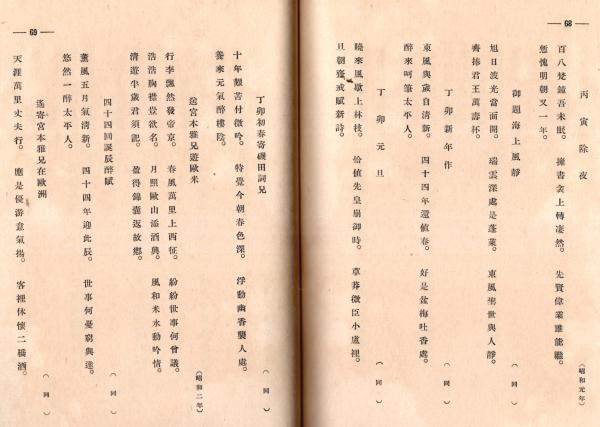 — 68 —
丙寅除夜
百八梵鐘吾未眠。 擁書衾上轉凄然。 先賢偉業誰能繼。
慙愧明朝又一年。 (昭和元年)
御題海上風靜
旭日波光當面開。 瑞雲深處是蓬萊。 東風聖世與人靜。
齊捧君王萬壽杯。 (同)
丁卯新年作
東風與歲自清新。 四十四年還値春。 好是盆梅吐香處。
醉來呵筆太平人。 (同)
丁卯元旦
曉來風歇上林枝。 恰値先皇崩御時。 草莽微臣小盧裡。
旦朝齋戒賦新詩。 (同)
— 69 —
丁卯初春寄磯田詞兄
十年艱苦付微吟。 特覺今朝春色深。 浮動幽香襲人處。
養來元氣醉樓陰。 (同)
送宮本雅兄遊歐米
行李飄然發帝京。 春風萬里上西征。 紛紛世事何曾議。
浩浩胸襟豈欲名。 月照歐山添酒興。 風和米水動吟情。
清遊半歲君須記。 盈得錦囊返故鄉。 (昭和二年)
四十四回誕辰醉賦
薰風五月氣清新。 四十四年迎此辰。 世事何憂窮與達。
悠然一醉太平人。 (同)
遙寄宮本雅兄在歐洲
天涯萬里丈夫行。 應是優游意氣揚。 客裡休懷二酒。